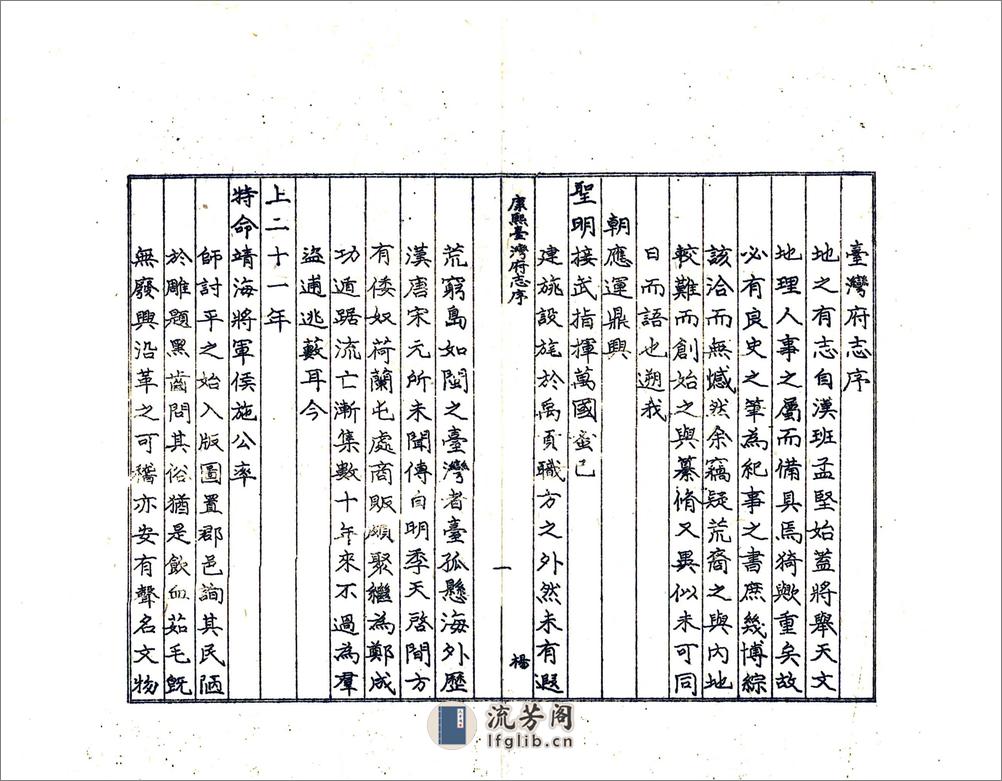 臺灣府志序
地之有志自漢班孟堅始蓋將舉天文
地理人事之屬而備具焉猗歟重矣故
必有良史之筆為紀事之書庶幾博綜
該洽而無憾然余竊疑荒裔之與內地
較難而創始之與纂脩又異似未可同
日而語也遡我
朝應運鼎興
聖明接武指揮萬國蚉已
建旄設旄於禹貢職方之外然未有遐
康熙臺灣府志序
一
楊
荒窮島如閩之臺灣者臺孤懸海外歷
漢唐宋元所未聞傳自明季天啓間方
有倭奴荷蘭屯處商販頗聚繼為鄭成
功遁踞流亡漸集數十年來不過為羣
盜逋逃藪耳今
上二十一年
特命靖海將軍侯施公率
師討平之始入版圖置郡邑詢其民陋
於雕題黑齒問其俗猶是飲血茹毛旣
無廢興沿革之可稽亦安有聲名文物
流芳阁
lfglib.cn